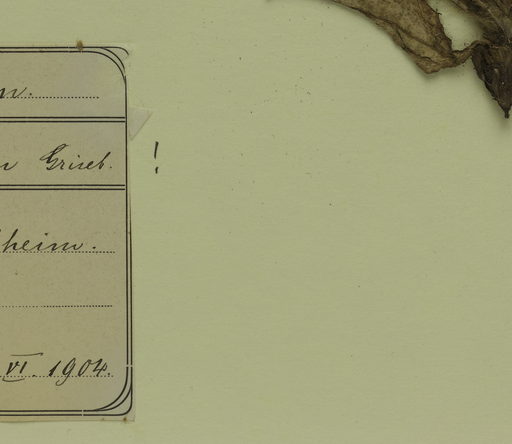 n Griseb. !
heim.
VI. 1904.